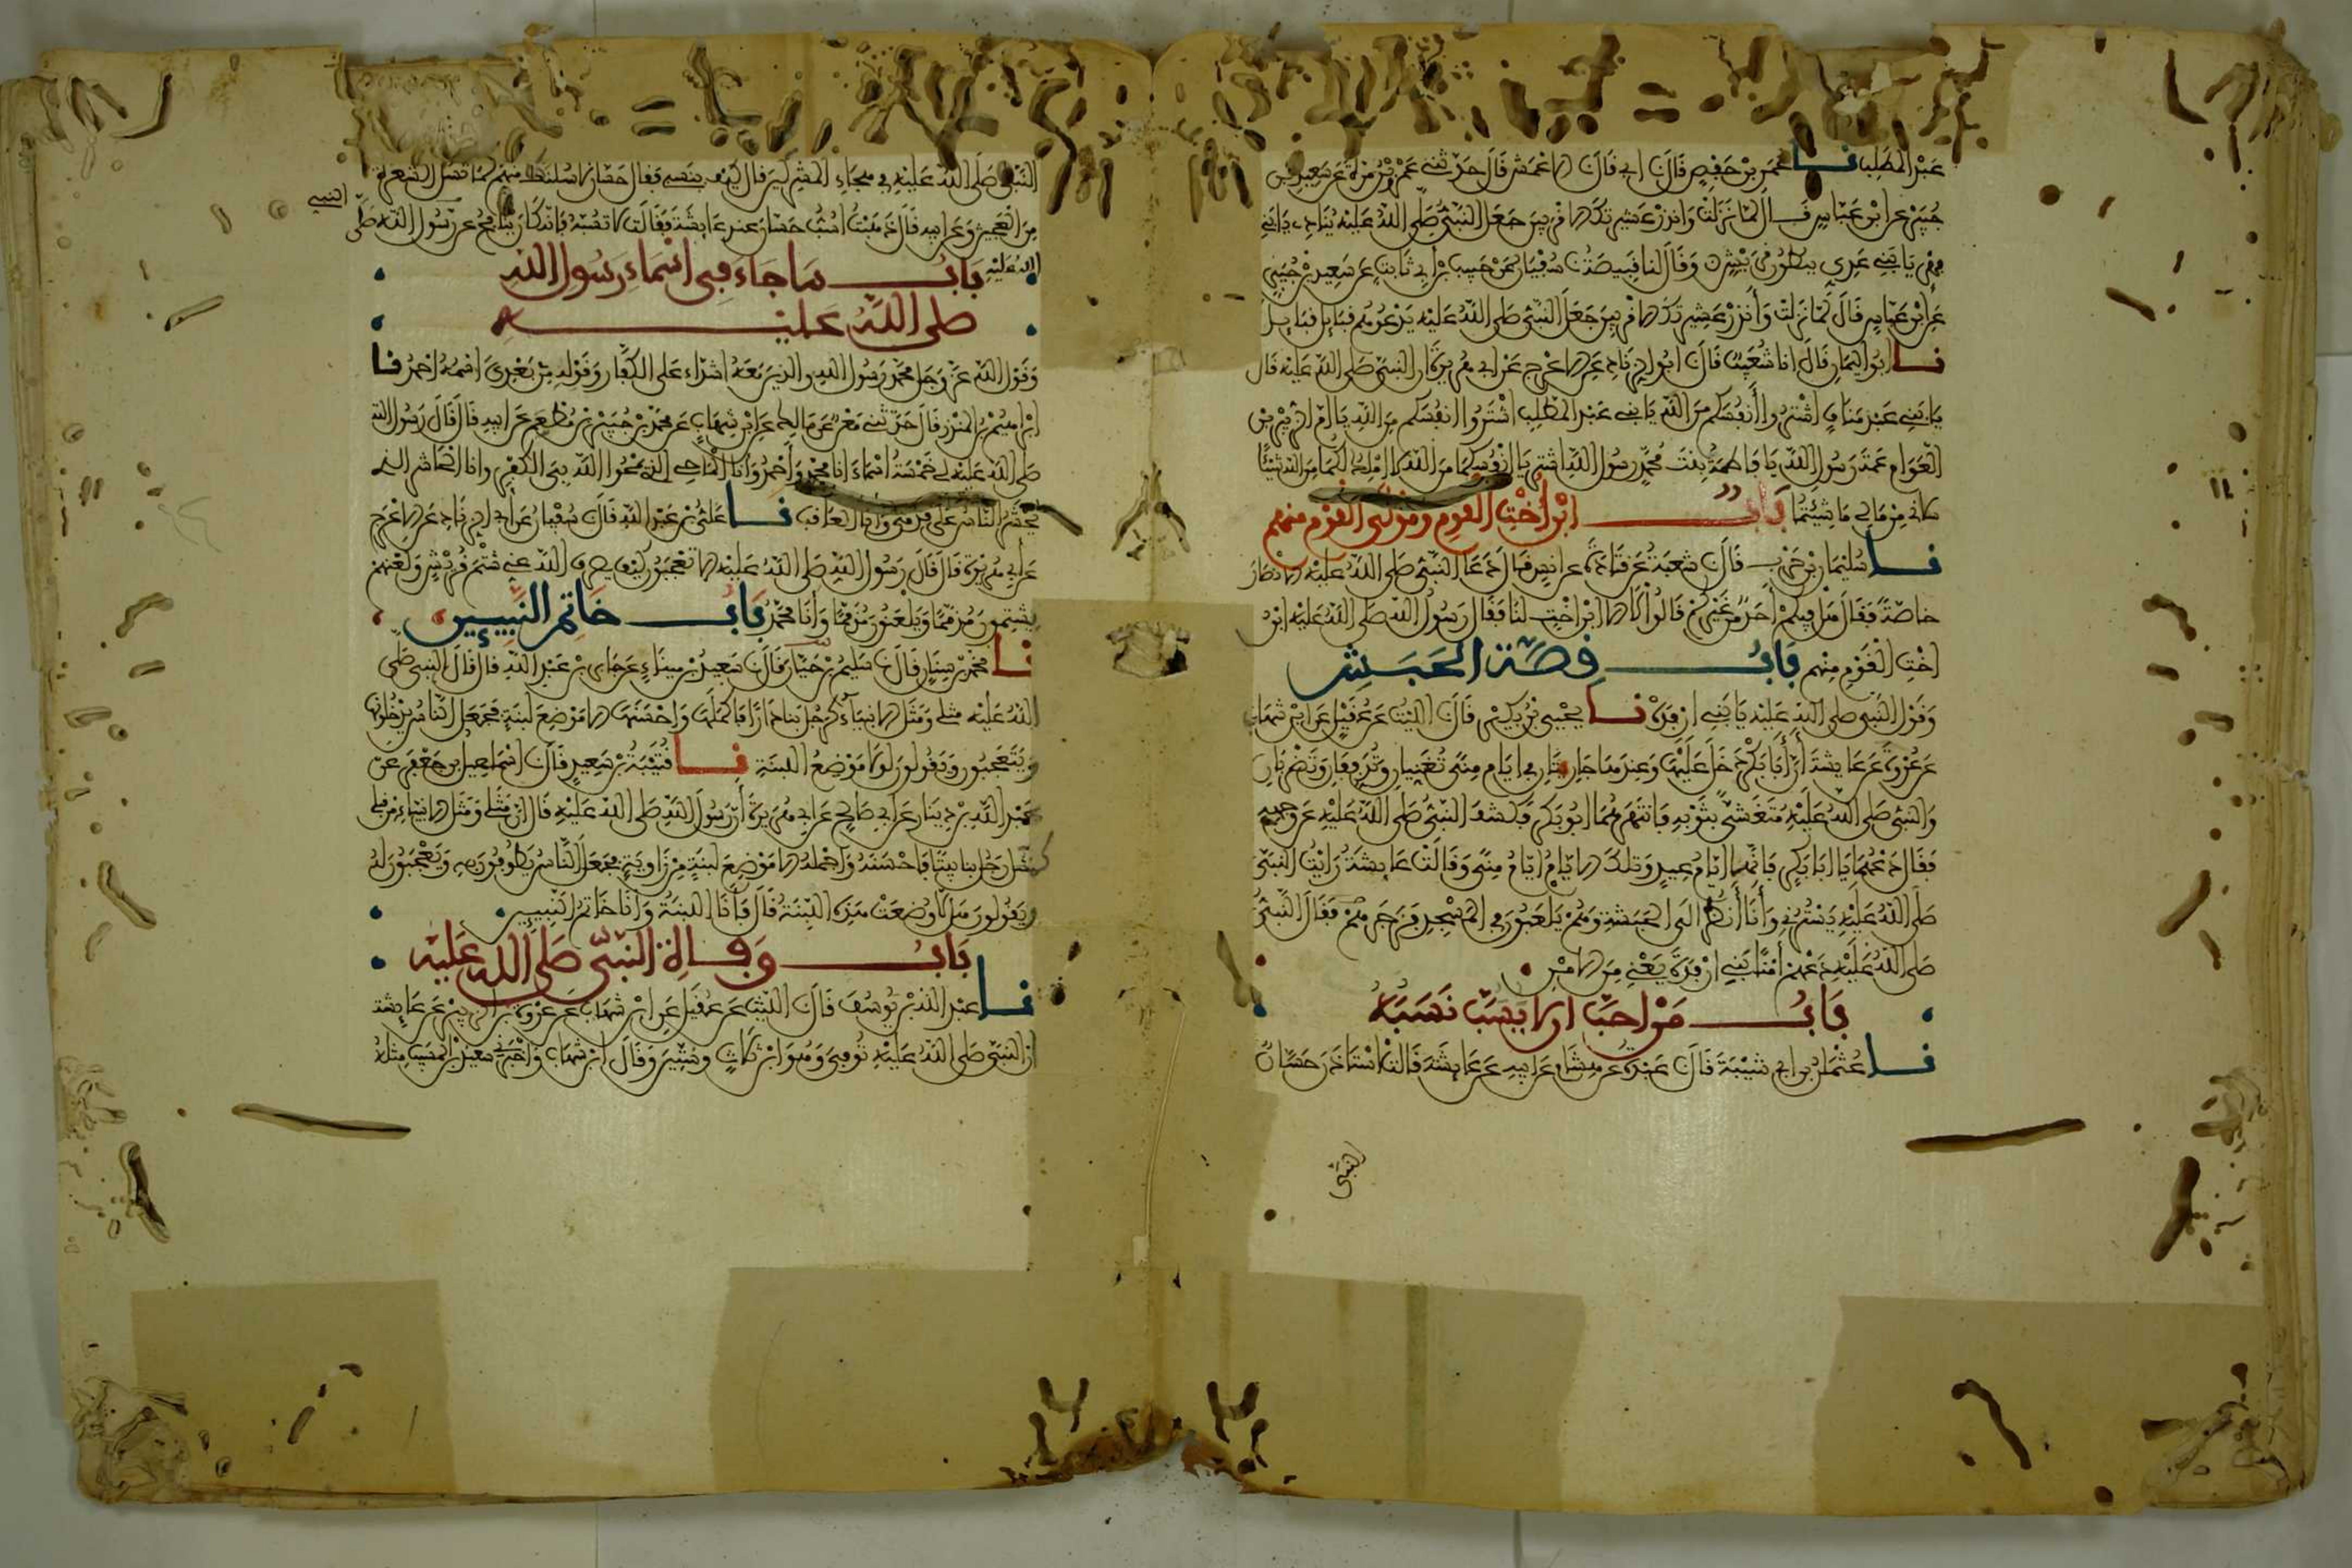 عبد المطلب نا عمر بن حفص قال نا ابي قال نا الاعمش قال حدثني عمرو بن مرة عن سعيد بن
جبير عن ابن عباس قال لما نزلت وانذر عشيرتك الاقربين جعل النبي صلى الله عليه ينادي يا بني
فهر يا بني عدي ببطون قريش وقال لنا قبيصة نا سفيان عن حبيب بن ابي ثابت عن سعيد بن جبير
عن ابن عباس قال لما نزلت وانذر عشيرتك الاقربين جعل النبي صلى الله عليه يدعوهم قبايل قبايل
نا ابو اليمان قال انا شعيب قال نا ابو الزناد عن الاعرج عن ابي هريرة ان النبي صلى الله عليه قال
يا بني عبد مناف اشتروا انفسكم من الله يا بني عبد المطلب اشتروا انفسكم من الله يا ام الزبير بن
العوام عمة رسول الله يا فاطمة بنت محمد رسول الله اشتريا انفسكما من الله لا املك لكما من الله شيئا
سلاني من مالي ما شيتما باب ابن اخت القوم ومولى القوم منهم
نا سليمان بن حرب قال نا شعبة عن قتادة عن انس قال دعا النبي صلى الله عليه الانصار
خاصة فقال هل فيكم احد من غيركم قالوا لا الا ابن اخت لنا فقال رسول الله صلى الله عليه ابن
اخت القوم منهم باب قصة الحبش
وقول النبي صلى الله عليه يا بني ارفدة نا يحيى بن بكير قال نا الليث عن عقيل عن ابن شهاب
عن عروة عن عايشة ان ابا بكر دخل عليها وعندها جاريتان في ايام منى تغنيان وتدففان وتضربان
والنبي صلى الله عليه متغشي بثوبه فانتهرهما ابو بكر فكشف النبي صلى الله عليه عن وجهه
فقال دعهما يا ابا بكر فانها ايام عيد وتلك الايام ايام منى وقالت عايشة رايت النبي
صلى الله عليه يسترني وانا انظر الى الحبشة وهم يلعبون في المسجد فزجرهم فقال النبي
صلى الله عليه دعهم امنا بني ارفدة يعني من الامن
باب من احب ان لا يسب نسبه
نا عثمان بن ابي شيبة قال نا عبدة عن هشام عن ابيه عن عايشة قالت استاذن حسان
النبي
النبي صلى الله عليه في هجاء المشركين قال كيف بنسبي فقال حسان لاسلنك منهم كما تسل الشعرة
من العجين وعن ابيه قال ذهبت اسب حسان عند عايشة فقالت لا تسبه فانه كان ينافح عن رسول الله صلى
الله عليه باب ما جاء في اسماء رسول الله
صلى الله عليه
وقول الله عز وجل محمد رسول الله والذين معه اشداء على الكفار وقوله من بعدي اسمه احمد نا
ابراهيم بن المنذر قال حدثني معن عن مالك عن ابن شهاب عن محمد بن جبير بن مطعم عن ابيه قال قال رسول الله
صلى الله عليه لي خمسة اسماء انا محمد واحمد وانا الماحي الذي يمحوا الله بي الكفر وانا الحاشر الذي
يحشر الناس على قدمي وانا العاقب نا علي بن عبد الله قال نا سفيان عن ابي الزناد عن الاعرج
عن ابي هريرة قال قال رسول الله صلى الله عليه الا تعجبون كيف يصرف الله عني شتم قريش ولعنهم
يشتمون مذمما ويلعنون مذمما وانا محمد باب خاتم النبيين
نا محمد بن سنان قال نا سليم بن حيان قال نا سعيد بن ميناء عن جابر بن عبد الله قال قال النبي صلى
الله عليه مثلي ومثل الانبياء كرجل بنا دارا فاكملها واحسنها الا موضع لبنة فجعل الناس يدخلونها
ويتعجبون ويقولون لولا موضع اللبنة نا قتيبة بن سعيد قال نا اسماعيل بن جعفر عن
عبد الله بن دينار عن ابي صالح عن ابي هريرة ان رسول الله صلى الله عليه قال ان مثلي ومثل الانبياء من قبلي
كمثل رجل بنا بيتا فاحسنه واجمله الا موضع لبنة من زاوية فجعل الناس يطوفون به ويعجبون له
ويقولون هلا وضعت هذه اللبنة قال فانا اللبنة وانا خاتم النبيين
باب وفاة النبي صلى الله عليه
نا عبد الله بن يوسف قال نا الليث عن عقيل عن ابن شهاب عن عروة بن الزبير عن عايشة
ان النبي صلى الله عليه توفي وهو ابن ثلاث وستين وقال ابن شهاب واخبرني سعيد بن المسيب مثله